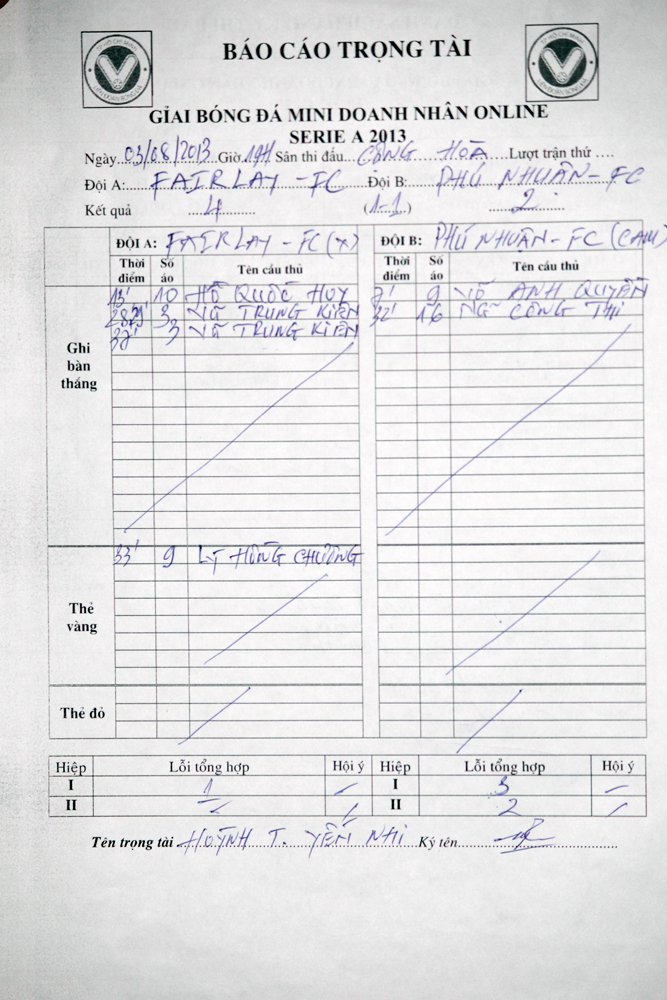 BÁO CÁO TRỌNG TÀI
GIẢI BÓNG ĐÁ MINI DOANH NHÂN ONLINE
SERIE A 2013
Ngày 03/08/2013 Giờ 19H Sân thi đấu CỘNG HOÀ Lượt trận thứ
Đội A: FAIRLAY - FC Đội B: PHÚ NHUẬN - FC
Kết quả 4 (1-1) 2
ĐỘI A: FAIRLAY - FC (X) ĐỘI B: PHÚ NHUẬN - FC (CAM)
Thời điểm Số áo Tên cầu thủ Thời điểm Số áo Tên cầu thủ
Ghi bàn thắng
13' 10 HỒ QUỐC HUY 7' 9 VÕ ANH QUYỀN
28,29' 3 VŨ TRUNG KIÊN 32' 16 NG CÔNG THI
32' 3 VŨ TRUNG KIÊN
Thẻ vàng
33' 9 LÝ HỒNG CHƯƠNG
Thẻ đỏ
Hiệp Lỗi tổng hợp Hội ý Hiệp Lỗi tổng hợp Hội ý
I 1 I 3
II II 2
Tên trọng tài HUỲNH T. YẾN NHI Ký tên